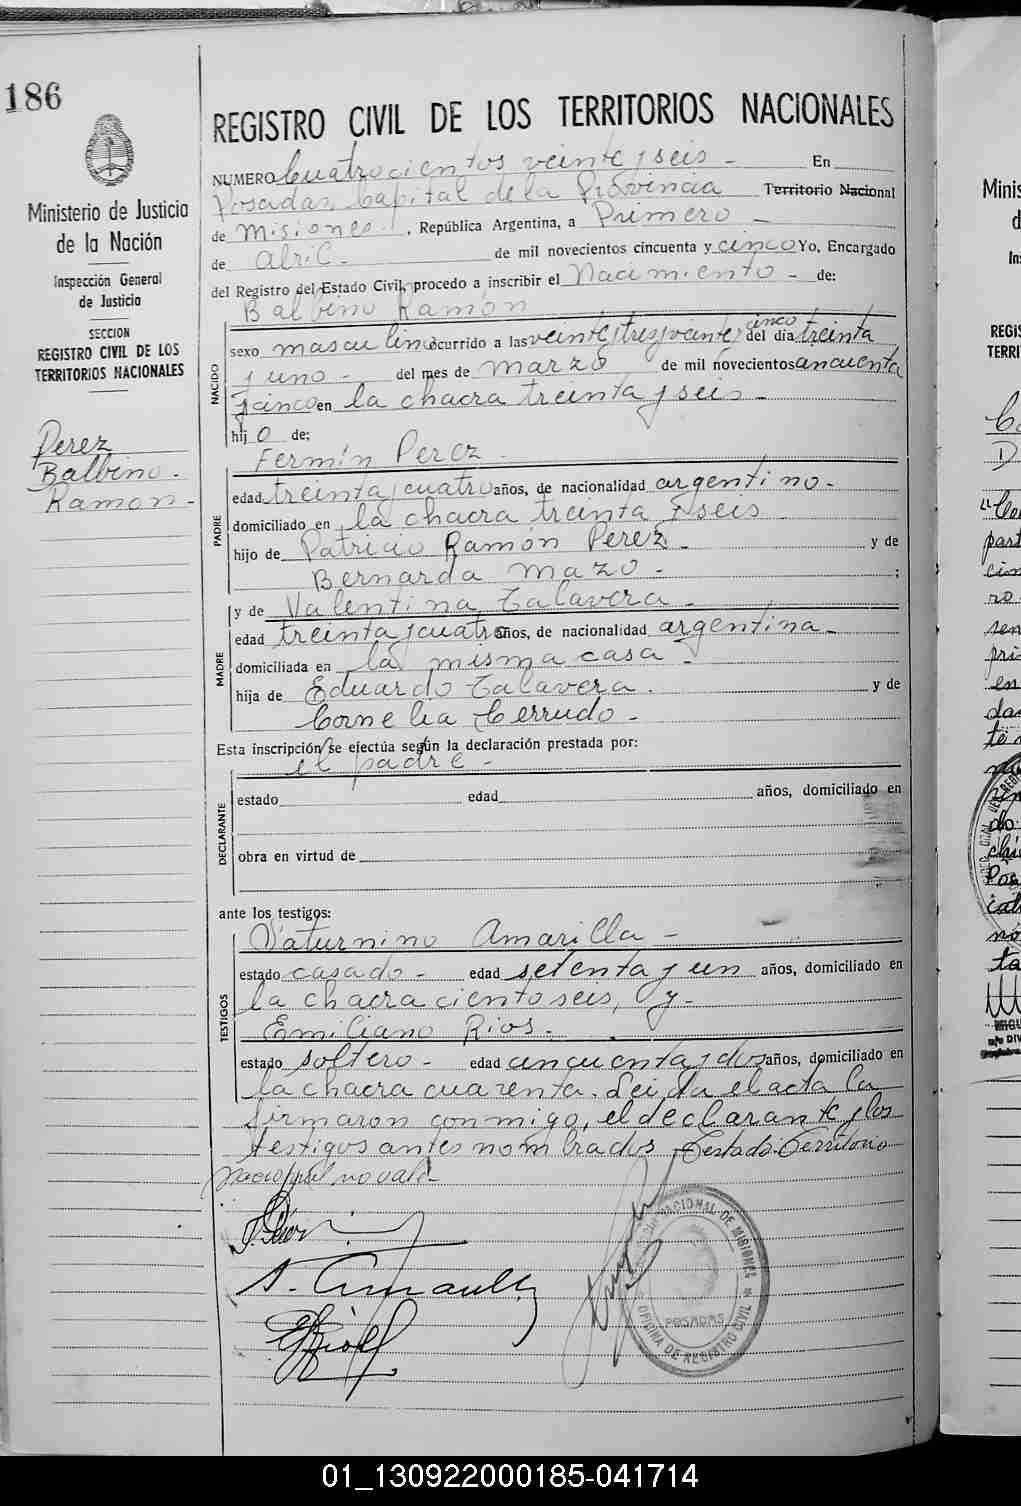 186
Ministerio de Justicia
de la Nación
Inspección General
de Justicia
SECCION
REGISTRO CIVIL DE LOS
TERRITORIOS NACIONALES
Perez
Balbino -
Ramon -
REGISTRO CIVIL DE LOS TERRITORIOS NACIONALES
NUMERO Cuatrocientos veinte y seis - En
Posadas, Capital de la Provincia Territorio Nacional
de Misiones, República Argentina, a Primero -
de abril - de mil novecientos cincuenta y cinco Yo, Encargado
del Registro del Estado Civil, procedo a inscribir el Nacimiento - de:
Balbino Ramón
NACIDO
sexo masculino ocurrido a las veinte y tres y veinte y cinco del día treinta
y uno - del mes de marzo de mil novecientos cincuenta
y cinco en la chacra treinta y seis -
hijo de:
Fermín Perez -
PADRE
edad treinta y cuatro años, de nacionalidad argentino -
domiciliado en la chacra treinta y seis
hijo de Patricio Ramón Perez - y de
Bernarda Mazo - ;
y de Valentina Talavera -
MADRE
edad treinta y cuatro años, de nacionalidad argentina -
domiciliada en la misma casa -
hija de Eduardo Talavera - y de
Cornelia Cerrudo -
Esta inscripción se efectúa según la declaración prestada por:
el padre -
DECLARANTE
estado edad años, domiciliado en
obra en virtud de
ante los testigos:
Saturnino Amarilla -
TESTIGOS
estado casado - edad setenta y un años, domiciliado en
la chacra ciento seis, y -
Emiliano Rios -
estado soltero - edad cincuenta y dos años, domiciliado en
la chacra cuarenta. Leida el acta la
firmaron conmigo, el declarante y los
testigos antes nombrados Testado: Territorio
Nacional no vale -
S. Amarilla
E. Rios
OFICINA DE REGISTRO CIVIL
NACIONAL DE MISIONES
POSADAS
01_130922000185-041714